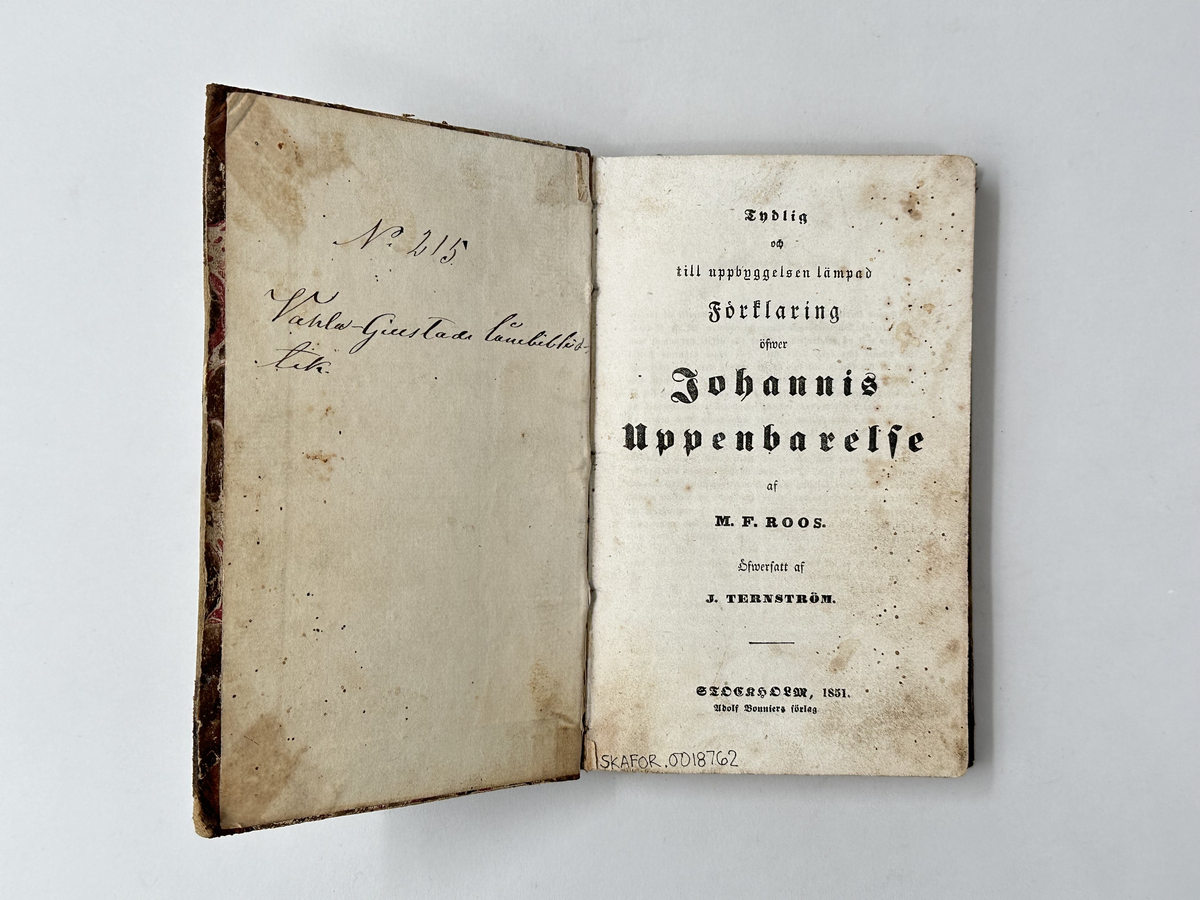 No. 215
Vahla-Giestads lånebiblio-
tek.
Tydlig
och
till uppbyggelsen lämpad
Förklaring
öfwer
Johannis
Uppenbarelse
af
M. F. ROOS.
Öfwersatt af
J. TERNSTRÖM.
STOCKHOLM, 1851.
Adolf Bonniers förlag
SKAFOR.0018762